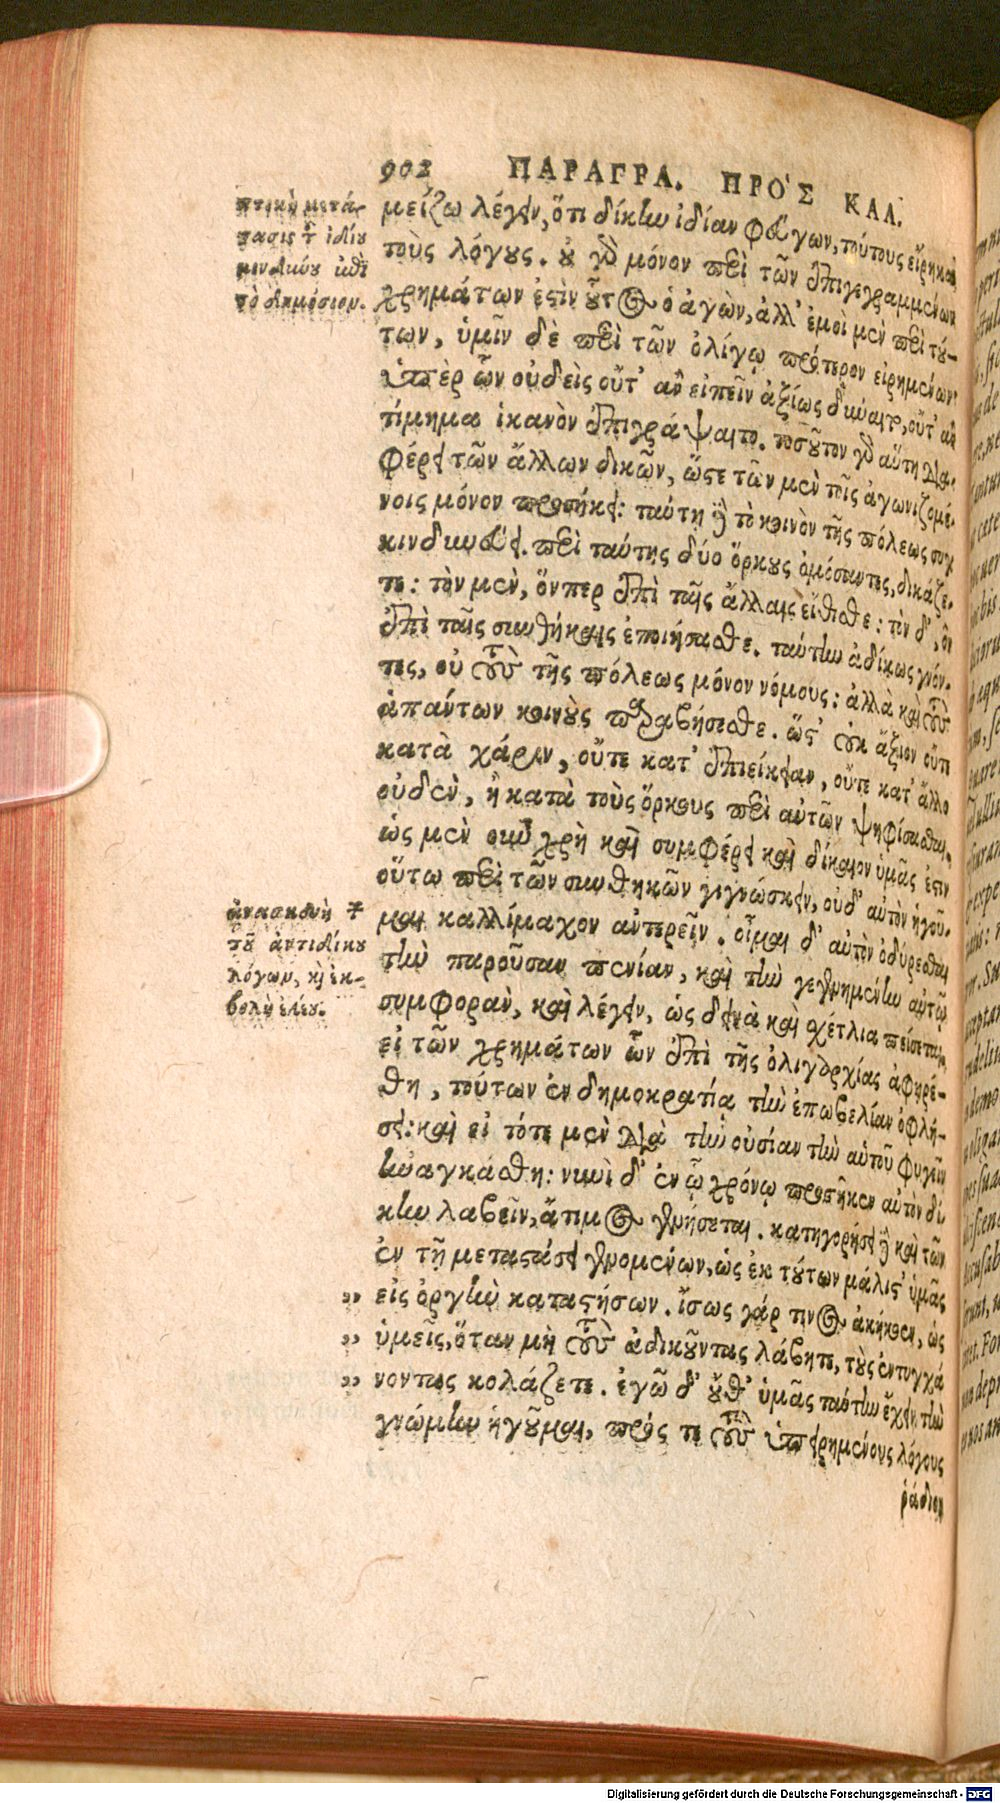 902 ΠΑΡΑΓΡΑ. ΠΡΟ'Σ ΚΑΛ.
μείζω λέγειν, ὅτι δίκην ἰδίαν φεύγων, τούτους εἴρηκα
τοὺς λόγους. οὐ γὰρ μόνον περὶ τῶν ἐπιγεγραμμένων
χρημάτων ἐστὶν οὗτος ὁ ἀγὼν, ἀλλ' ἐμοὶ μὲν περὶ τού-
των, ὑμῖν δὲ περὶ τῶν ὀλίγῳ πρότερον εἰρημένων·
ὑπὲρ ὧν οὐδεὶς οὔτ' ἂν εἰπεῖν ἀξίως δύναιτο, οὔτ' ἂν
τίμημα ἱκανὸν ἐπιγράψαιτο. τοσοῦτον γὰρ αὕτη δια-
φέρει τῶν ἄλλων δικῶν, ὥστε τῶν μὲν τοῖς ἀγωνιζομέ-
νοις μόνον προσήκει: ταύτῃ δὲ τὸ κοινὸν τῆς πόλεως συγ
κινδυνεύει. περὶ ταύτης δύο ὅρκους ὀμόσαντες, δικάζε-
τε: τὸν μὲν, ὅνπερ ἐπὶ ταῖς ἄλλαις εἴθισθε: τὸν δ', ὃν
ἐπὶ ταῖς συνθήκαις ἐποιήσασθε. ταύτην ἀδίκως γνόν-
τες, οὐ τοὺς τῆς πόλεως μόνον νόμους: ἀλλὰ καὶ τοὺς
ἁπάντων κοινοὺς παραβήσεσθε. ὥστ' οὐκ ἄξιον οὔτε
κατὰ χάριν, οὔτε κατ' ἐπιείκειαν, οὔτε κατ' ἄλλο
οὐδὲν, ἢ κατὰ τοὺς ὅρκους περὶ αὐτῶν ψηφίσασθαι.
ὡς μὲν οὖν χρὴ καὶ συμφέρει καὶ δίκαιον ὑμᾶς ἐστιν
οὕτω περὶ τῶν συνθηκῶν γιγνώσκειν, οὐδ' αὐτὸν ἡγοῦ-
μαι καλλίμαχον ἀντερεῖν. οἶμαι δ' αὐτὸν ὀδύρεσθαι
τὴν παροῦσαν πενίαν, καὶ τὴν γεγενημένην αὐτῷ
συμφορὰν, καὶ λέγειν, ὡς δεινὰ καὶ σχέτλια πείσεται,
εἰ τῶν χρημάτων ὧν ἐπὶ τῆς ὀλιγαρχίας ἀφῃρέ-
θη, τούτων ἐν δημοκρατίᾳ τὴν ἐπωβελίαν ὀφλή-
σει: καὶ εἰ τότε μὲν διὰ τὴν οὐσίαν τὴν αὑτοῦ φυγεῖν
ἠναγκάσθη: νυνὶ δ' ἐν ᾧ χρόνῳ προσῆκεν αὐτὸν δί
κην λαβεῖν, ἄτιμος γενήσεται. κατηγορήσει δὲ καὶ τῶν
ἐν τῇ μεταστάσει γενομένων, ὡς ἐκ τούτων μάλιστ' ὑμᾶς
„ εἰς ὀργὴν καταστήσων. ἴσως γάρ τινος ἀκήκοεν, ὡς
„ ὑμεῖς, ὅταν μὴ τοὺς ἀδικοῦντας λάβητε, τοὺς ἐντυγχά
„ νοντας κολάζετε. ἐγὼ δ' οὔθ' ὑμᾶς ταύτην ἔχειν τὴν
γνώμην ἡγοῦμαι, πρός τε τοὺς ὑπειρημένους λόγους
ῥᾴδιον
πτικὴ μετά-
στασις
τὸ δημόσιον.
ἀνασκευὴ τ
τοῦ ἀντιδίκου
λόγων, καὶ ἐκ-
βολὴ ἐλέου.
Digitalisierung gefördert durch die Deutsche Forschungsgemeinschaft - DFG